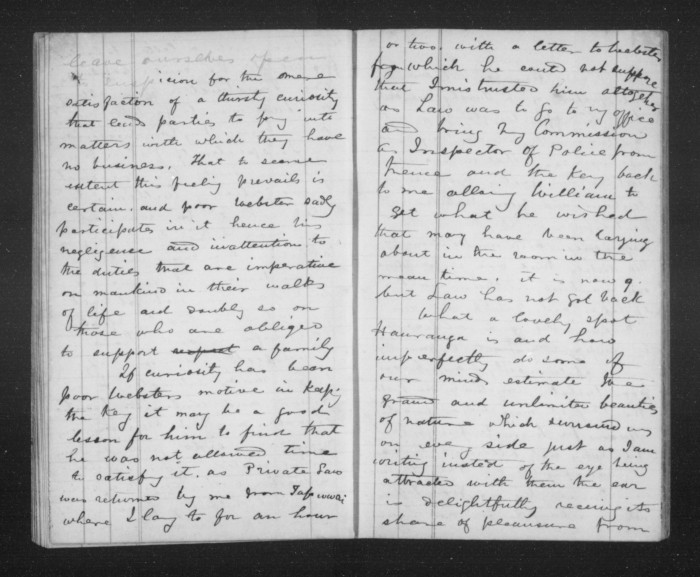 leave ourselves open
icion for the mere
satisfaction of a thirsty curiosity
that leads parties to pry into
matters with which they have
no business. That to some
extent this feeling prevails is
certain. and poor Webster sadly
participates in it hence his
negligence and inattention to
the duties that are imperative
on mankind in their walks
of life and doubly so on
those who are obliged
to support respect a family
If curiosity has been
poor Websters motive in keepg
the Key it may be a good
lesson for him to find that
he was not allowed time
to satisfy it. as Private Law
was returned by me from Tapuwai
where I lay to for an hour
or two. with a letter to Webster
from which he could not suppose
that I mistrusted him altogether
as Law was to go to my office
and bring my Commission
as Inspector of Police from
thence and the Key back
to me allowing William to
get what he wished
that may have been laying
about in the room in the
mean time. it is now 9.
but Law has not got back
What a lovely spot
Hauranga is and how
imperfectly do some of
our minds estimate the
grand and unlimited beauties
of nature which surround us
on every side just as I am
writing insted of the eye being
attracted with them the ear
is delightfully receving its
share of pleausure from